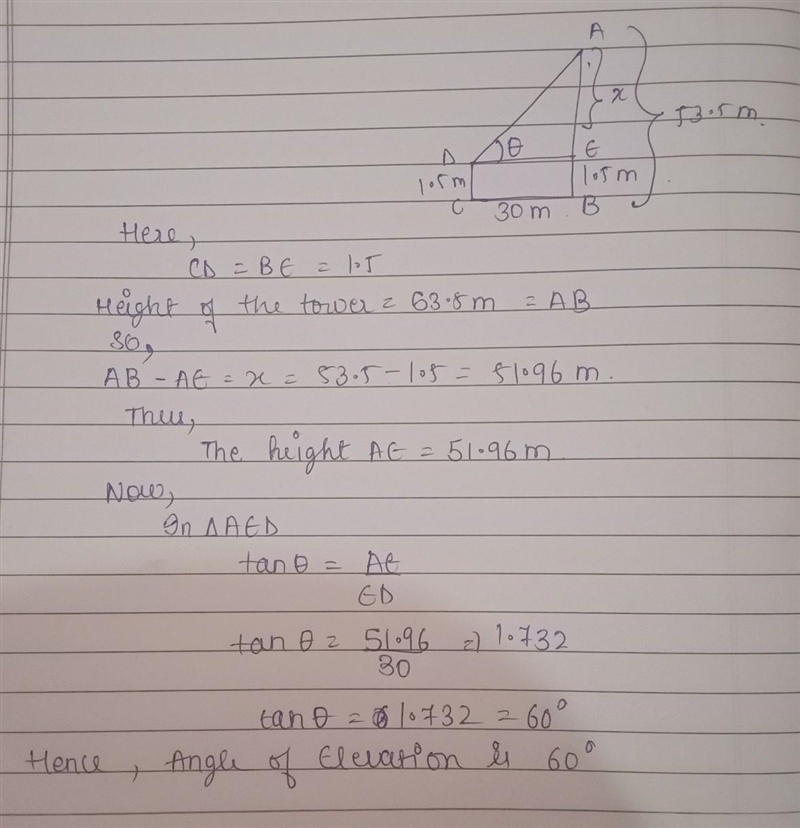 A
x
53.5 m.
D θ E
1.5 m 1.5 m
C 30 m . B
Here,
CD = BE = 1.5
Height of the tower = 63.5 m = AB
So,
AB - AE = x = 53.5 - 1.5 = 51.96 m.
Thus,
The height AE = 51.96 m
Now,
In ΔAED
tan θ = AE
ED
tan θ = 51.96 ⇒ 1.732
30
tan θ = 1.732 = 60°
Hence, Angle of Elevation is 60°